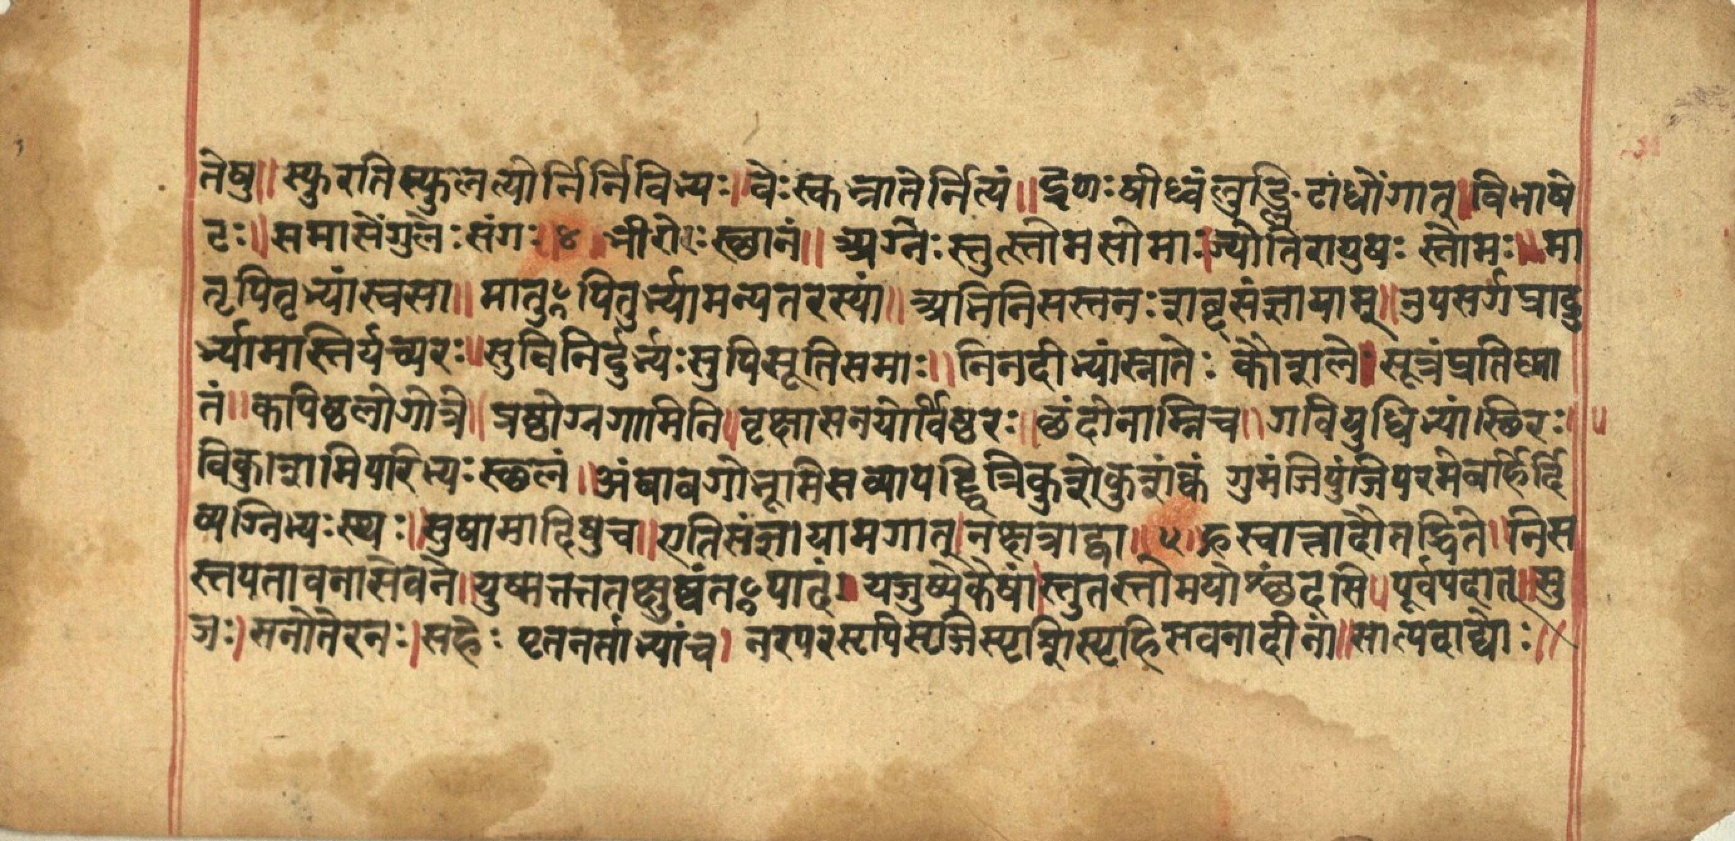 तेषु॥ स्फुरतिस्फुलत्योर्निर्निविभ्यः। वेः स्कभ्नातेर्नित्यं॥ इणः षीध्वंलुङ्लिटांधोंगात्। विभाषे
टः। समासेंगुलेः संगः ४ भीरोः स्छानं॥ अग्नेः स्तुत्स्तोमसोमाः। ज्योतिरायुषः स्तोमः॥ मा
तृपितृभ्यां स्वसा॥ मातुःपितुर्भ्यामन्यतरस्यां॥ अभिनिसस्तनः शब्दसंज्ञायाम्। उपसर्गप्रादु
र्भ्यामस्तिर्यच्परः॥ सुविनिर्दुर्भ्यः सुपिसूतिसमाः॥ निनदीभ्यांस्नातेः कौशले। सूत्रंप्रतिष्णा
तं॥ कपिष्ठलोगोत्रे॥ प्रष्ठोग्नगामिनि। वृक्षासनयोर्विष्टरः॥ छंदोनाम्निच॥ गवियुधिभ्यां स्छिरः॥
विकुशमिपरिभ्यः स्छलं॥ अंबाबगोभूमिसव्यापद्वित्रिकुशेकुशंक्वंगुमंजिपुंजिपरमेबर्हिर्दि
व्यग्निभ्यः स्थः॥ सुषामादिषुच॥ एतिसंज्ञायामगात्। नक्षत्राद्वा॥ ५ ह्रस्वात्तादौतद्धिते॥ निस
स्तपतावनासेवने। युष्मत्तत्ततक्षुष्वंतःपादं। यजुष्येकेषां। स्तुतस्तोमयोश्छंदसि। पूर्वपदात्॥ सु
ञः। सनोतेरनः। सहेः पृतनर्ताभ्यांच। नरपरसृपिसृजिस्पृशिस्पृहिसवनादीनां॥ सात्पदाद्योः॥